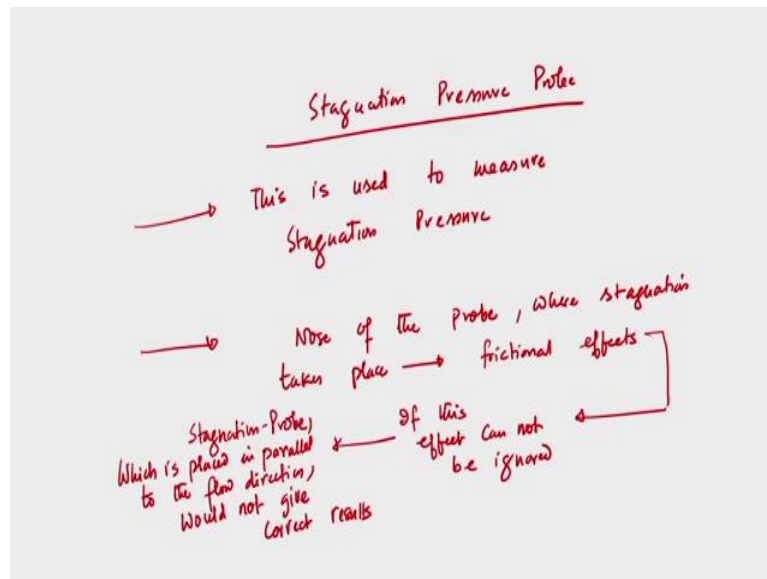 Stagnation Pressure Probe
This is used to measure
Stagnation Pressure
Nose of the probe, where stagnation
taken place → frictional effects
If this
effect can not
be ignored
Stagnation-Probe,
Which is placed in parallel
to the flow direction,
Would not give
Correct results